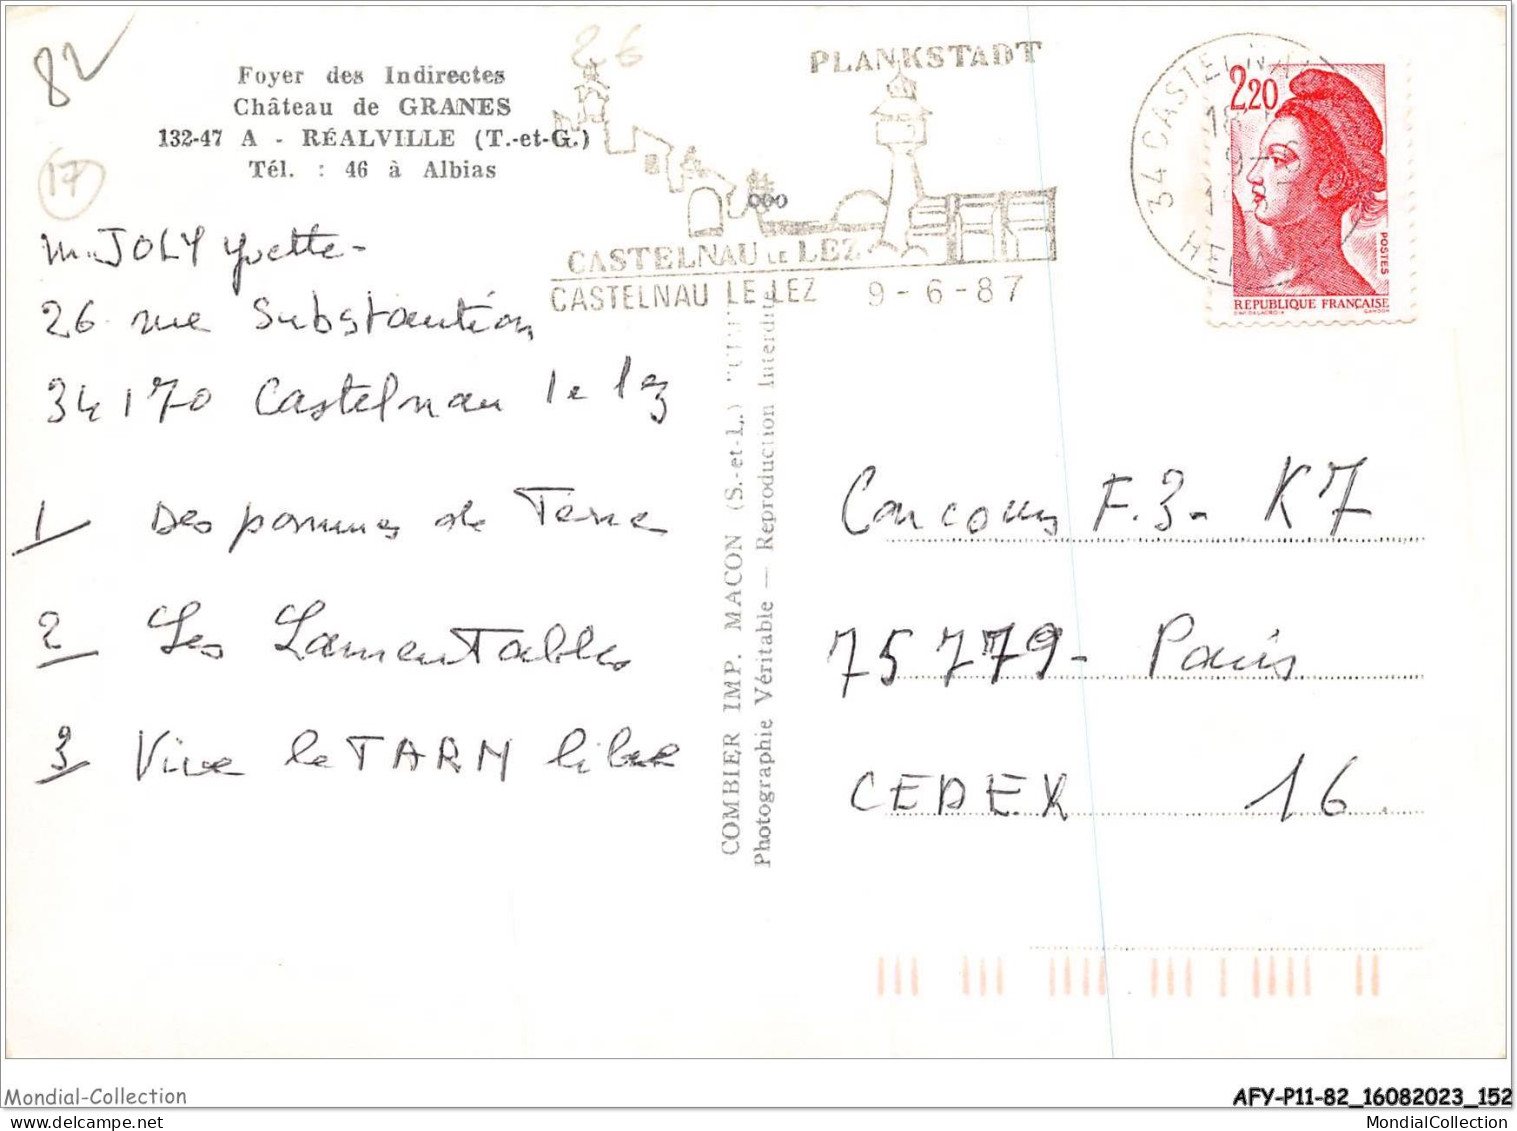 82
26
Foyer des Indirectes
Château de GRANES
132-47 A - RÉALVILLE (T.-et-G.)
Tél. : 46 à Albias
17
PLANKSTADT
CASTELNAU LE LEZ
CASTELNAU LE LEZ 9-6-87
34 CASTELNA
18
9-
HE
2,20
POSTES
REPUBLIQUE FRANÇAISE
GANDON
M. JOLY Yvette -
26 rue Substantion
34170 Castelnau le lez
1 Des pommes de Terre
2 Les Lamentables
3 Vive le TARN libre
COMBIER IMP. MACON (S.-et-L.)
Photographie Véritable — Reproduction Interdite
Concours F.3- K7
75779- Paris
CEDEX 16
Mondial-Collection
AFY-P11-82_16082023_152
MondialCollection